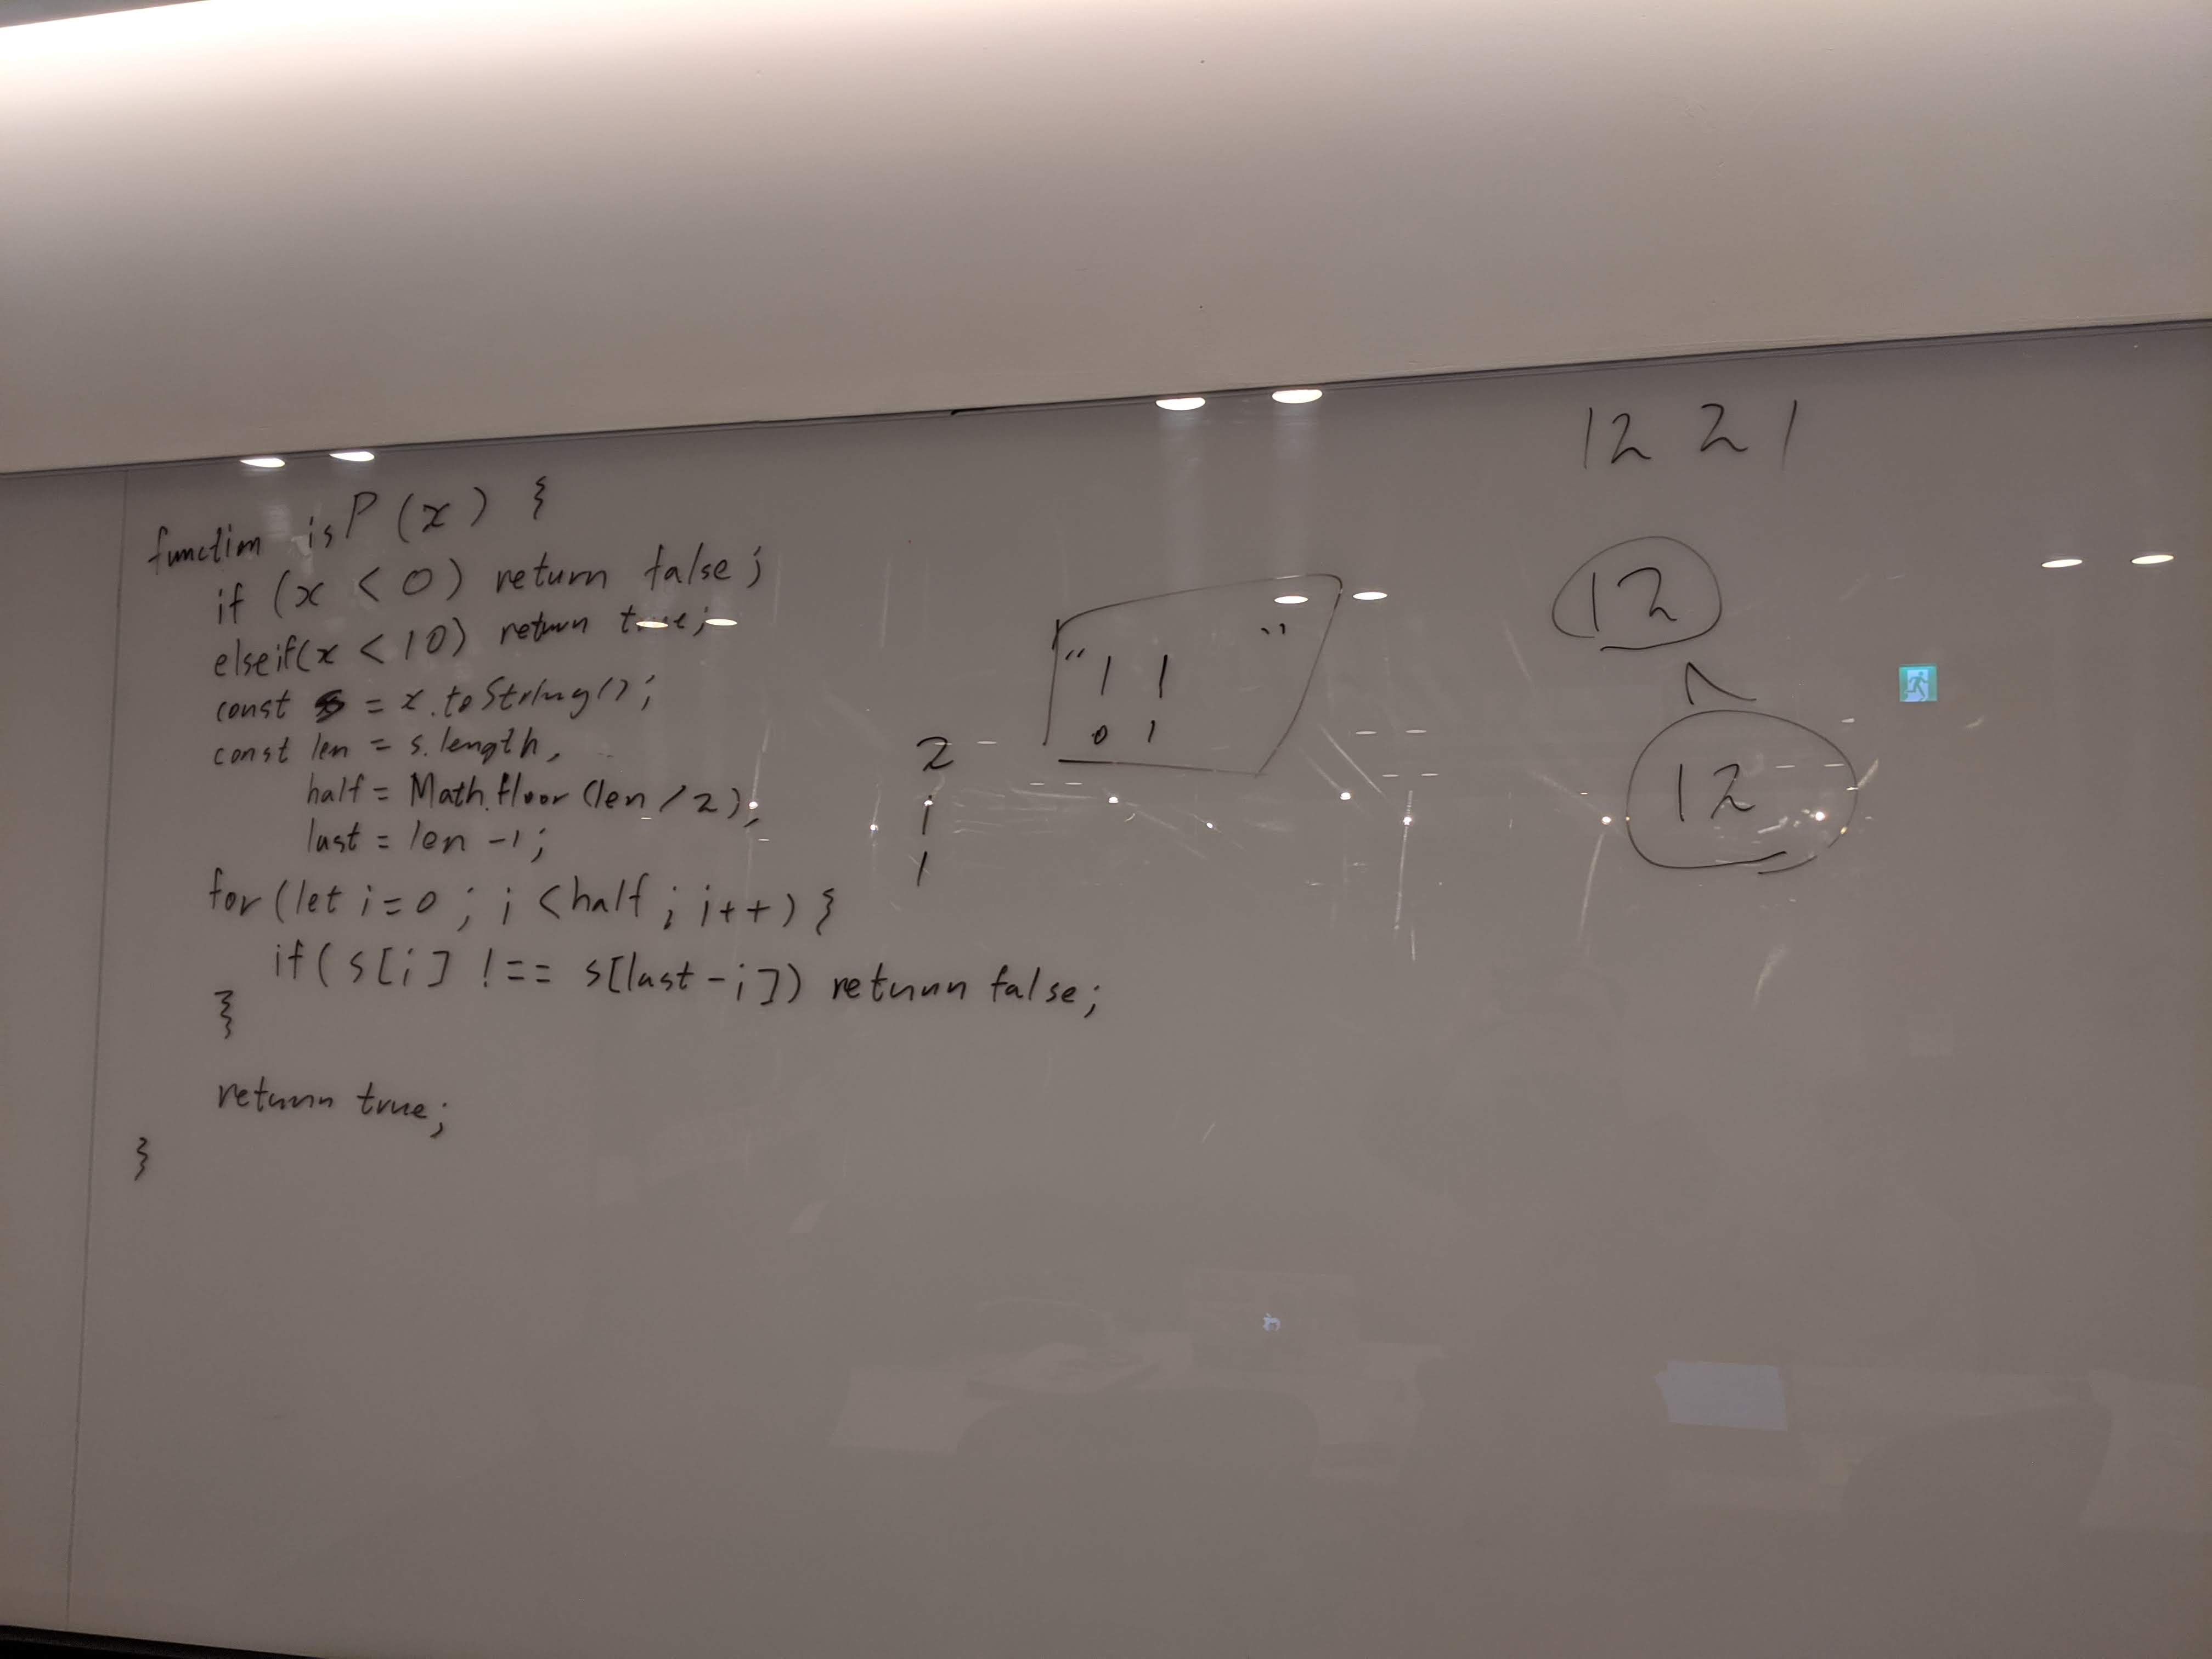 function isP(x) {
if (x < 0) return false;
elseif(x < 10) return true;
const s = x.toString();
const len = s.length,
half = Math.floor(len / 2),
last = len -1;
for (let i=0; i <half; i++) {
if (s[i] !== s[last-i]) return false;
}
return true;
}
2
i
1
" 1 1 "
0 1
12 2 1
12
12